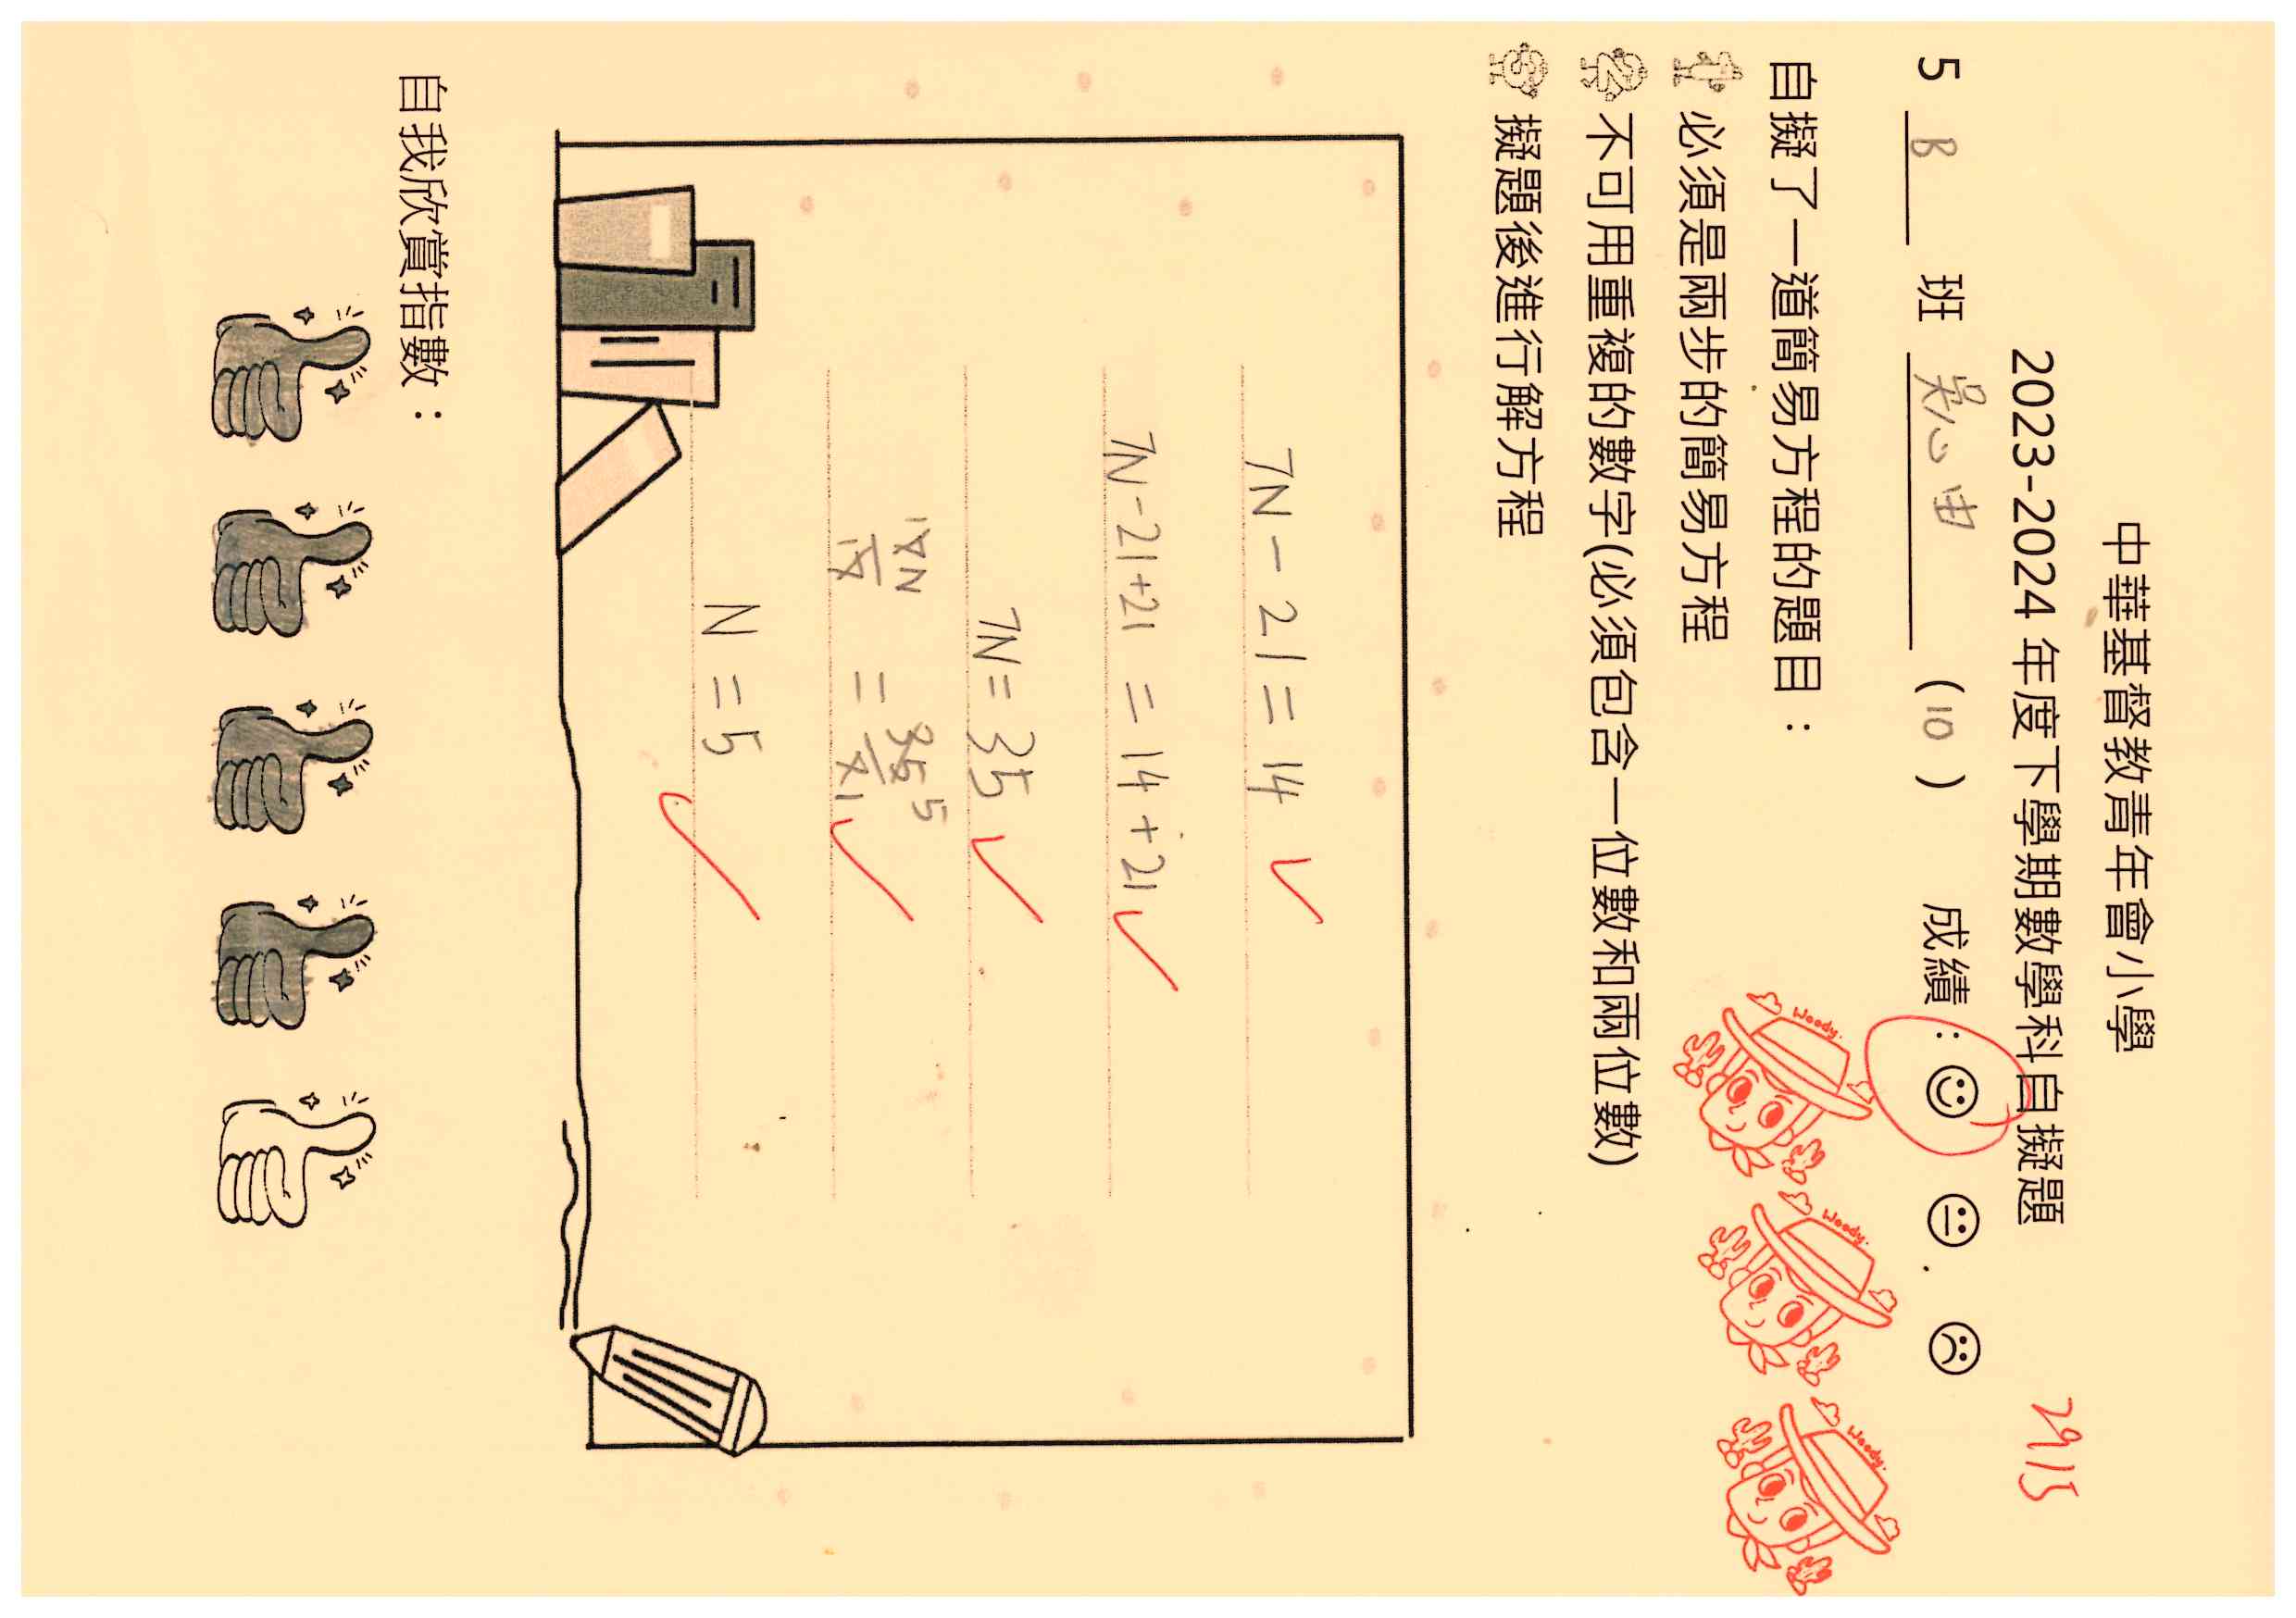 中華基督教青年會小學
2023-2024 年度下學期數學科自擬題
29/5
5 B 班 吳心由 (10) 成績：
自擬了一道簡易方程的題目：
必須是兩步的簡易方程
不可用重複的數字(必須包含一位數和兩位數)
擬題後進行解方程
Woody.
Woody.
Woody.
7N - 21 = 14
7N - 21 + 21 = 14 + 21
7N = 35
1 7N / 7 1 = 35 5 / 7 1
N = 5
自我欣賞指數：